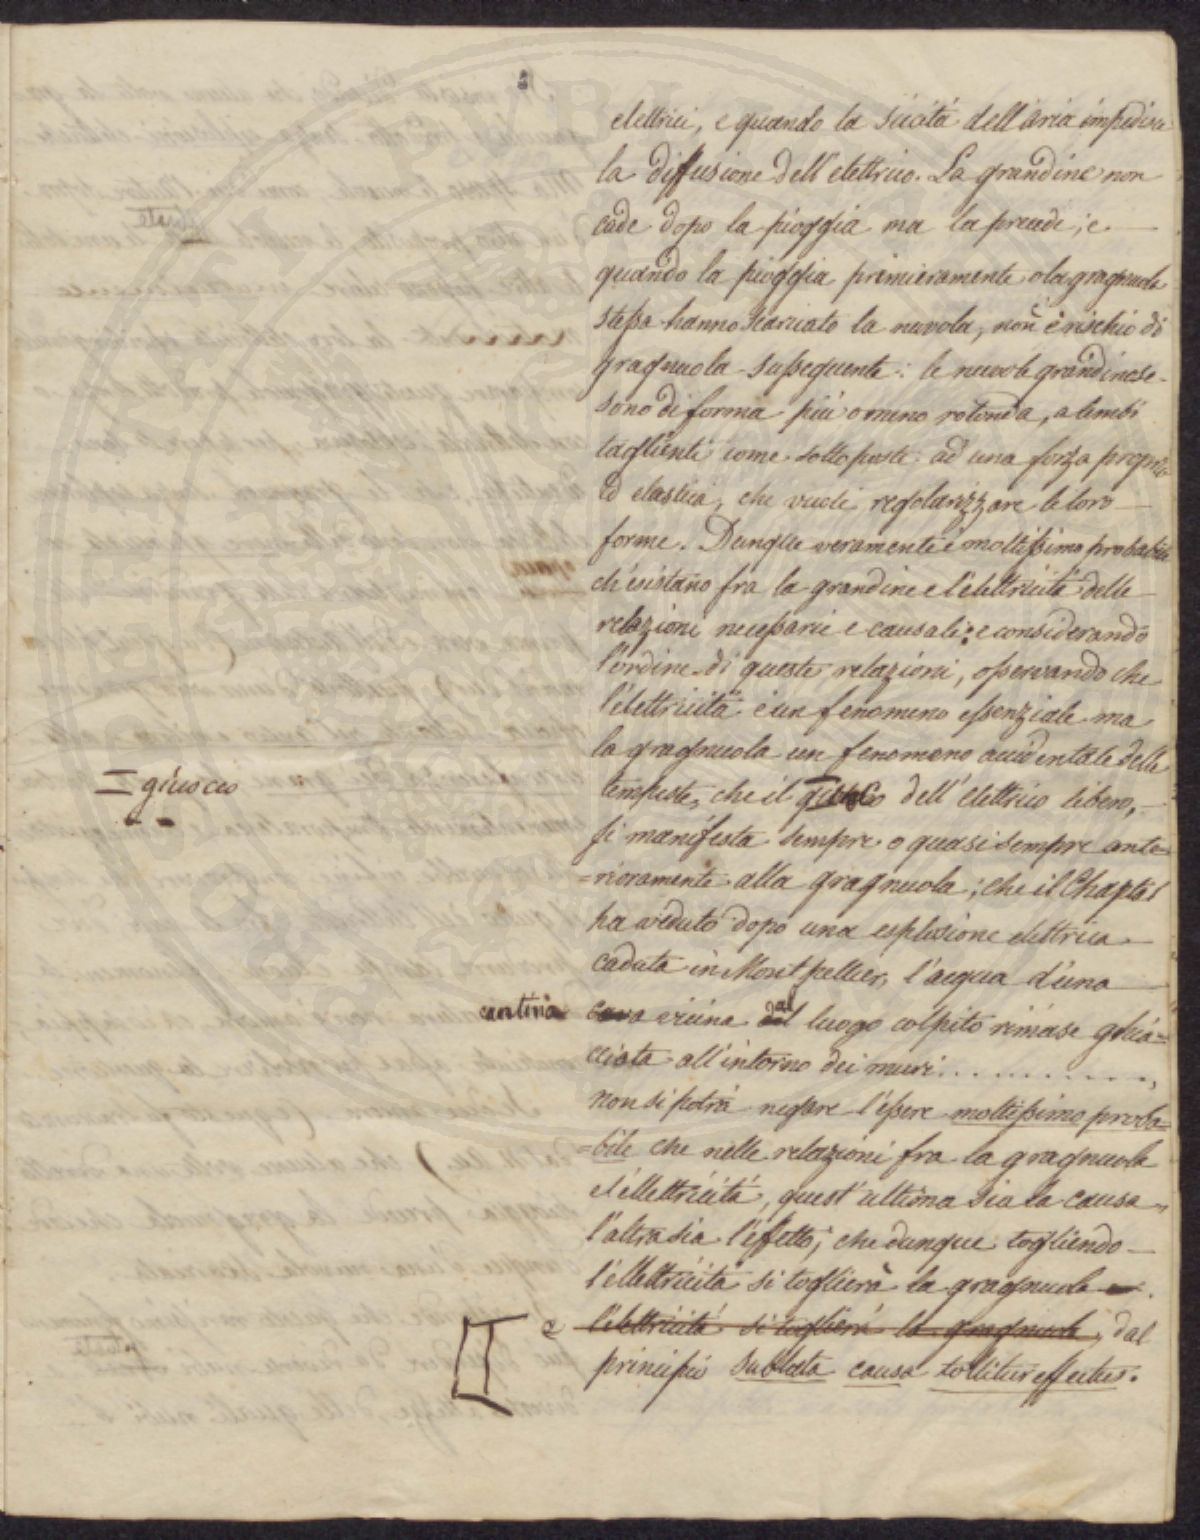 elettrici, e quando la siccità dell'aria impedisce
la diffusione dell'elettrico. La grandine non
cade dopo la pioggia ma la precede; e
quando la pioggia primieramente o la gragnuola
stessa hanno scaricato la nuvola, non è rischio di
gragnuola susseguente: le nuvole grandinose
sono di forma più o meno rotonda, a lembi
taglienti come sottoposte ad una forza propria
ed elastica, che vuole regolarizzare le loro
forme. Dunque veramente è moltissimo probabile
ch'esistano fra la grandine e l'elettricità delle
relazioni necessarie e causali: e considerando
l'ordine di queste relazioni, osservando che
l'elettricità è un fenomeno essenziale ma
la gragnuola un fenomeno accidentale delle
giuoco
tempeste, che il giuoco dell'elettrico libero,
si manifesta sempre o quasi sempre ante=
=riormente alla gragnuola; che il Chaptal
ha veduto dopo una esplosione elettrica
caduta in Montpellier, l'acqua d'una
cantina cava vicina dal luogo colpito rimase ghia=
cciata all'intorno dei muri............,
non si potrà negare l'essere moltissimo proba=
=bile che nelle relazioni fra la gragnuola
e l'elettricità, quest'ultima sia la causa
l'altra sia l'effetto; che dunque togliendo
l'elettricità si toglierà la gragnuola
e l'elettricità si toglierà la gragnuola, dal
principio sublata causa tollitur effectus.